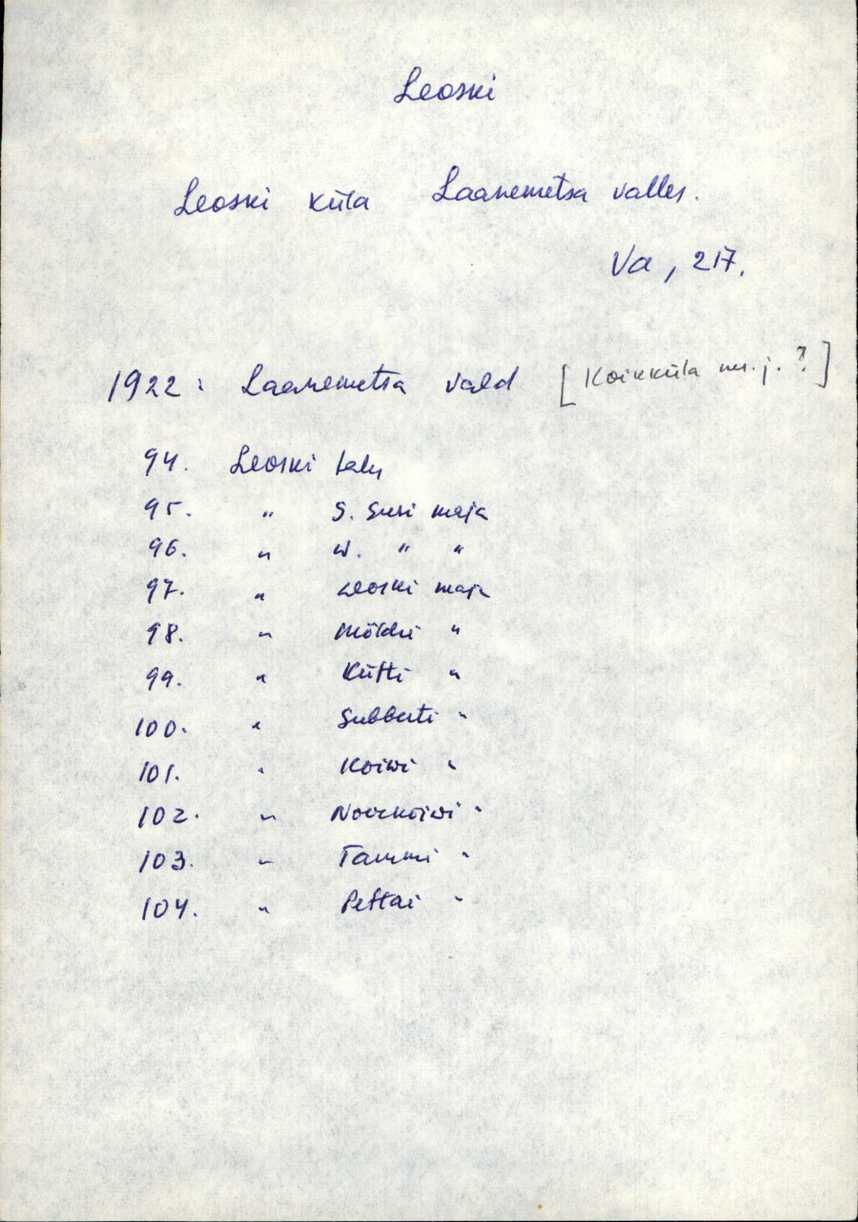 Leoski
Leoski küla Laanemetsa valles.
Va, 217.
1922: Laanemetsa vald [Koikküla m. j. ?]
94. Leoski talu
95. " S. Suri maja
96. " W. " "
97. " Leoski maja
98. " Möldri "
99. " Kütti "
100. " Subberti "
101. " Koiwi "
102. " Noorkoiwi "
103. " Tammi "
104. " Pettai "